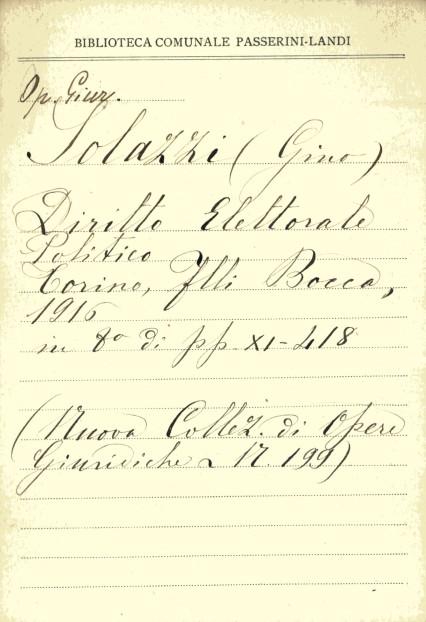 BIBLIOTECA COMUNALE PASSERINI-LANDI
Op. Giur.
Solazzi (Gino)
Diritto Elettorale
Politico
Torino, Flli Bocca,
1916
in 8° di pp XI-418
(Nuova Collez. di Opere
Giuridiche N. 199)